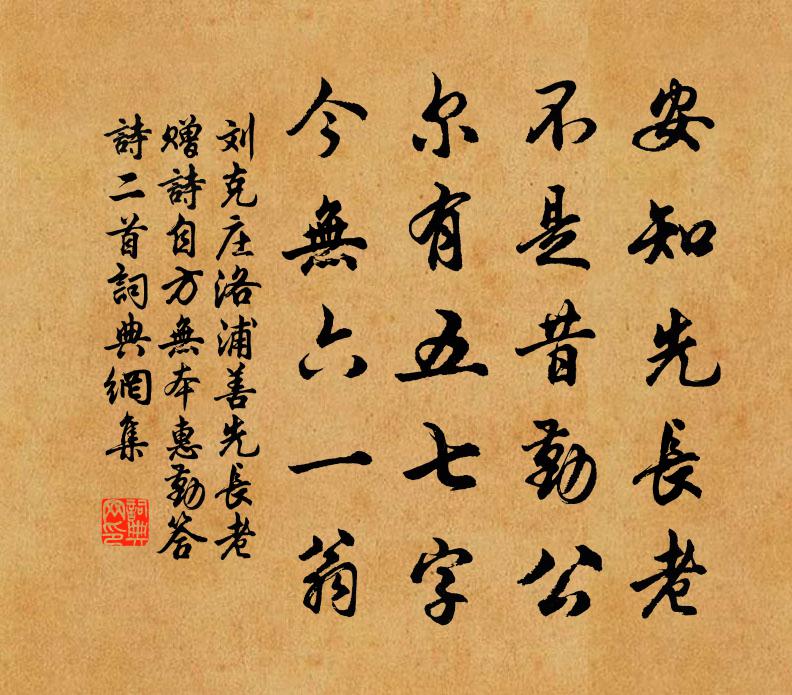 安知先長老
不是昔勤公
尔有五七字
今無六一翁
刘克庄洛浦善先長老
贈詩自方無本惠勤答
詩二首詞典網集
詞典
网印